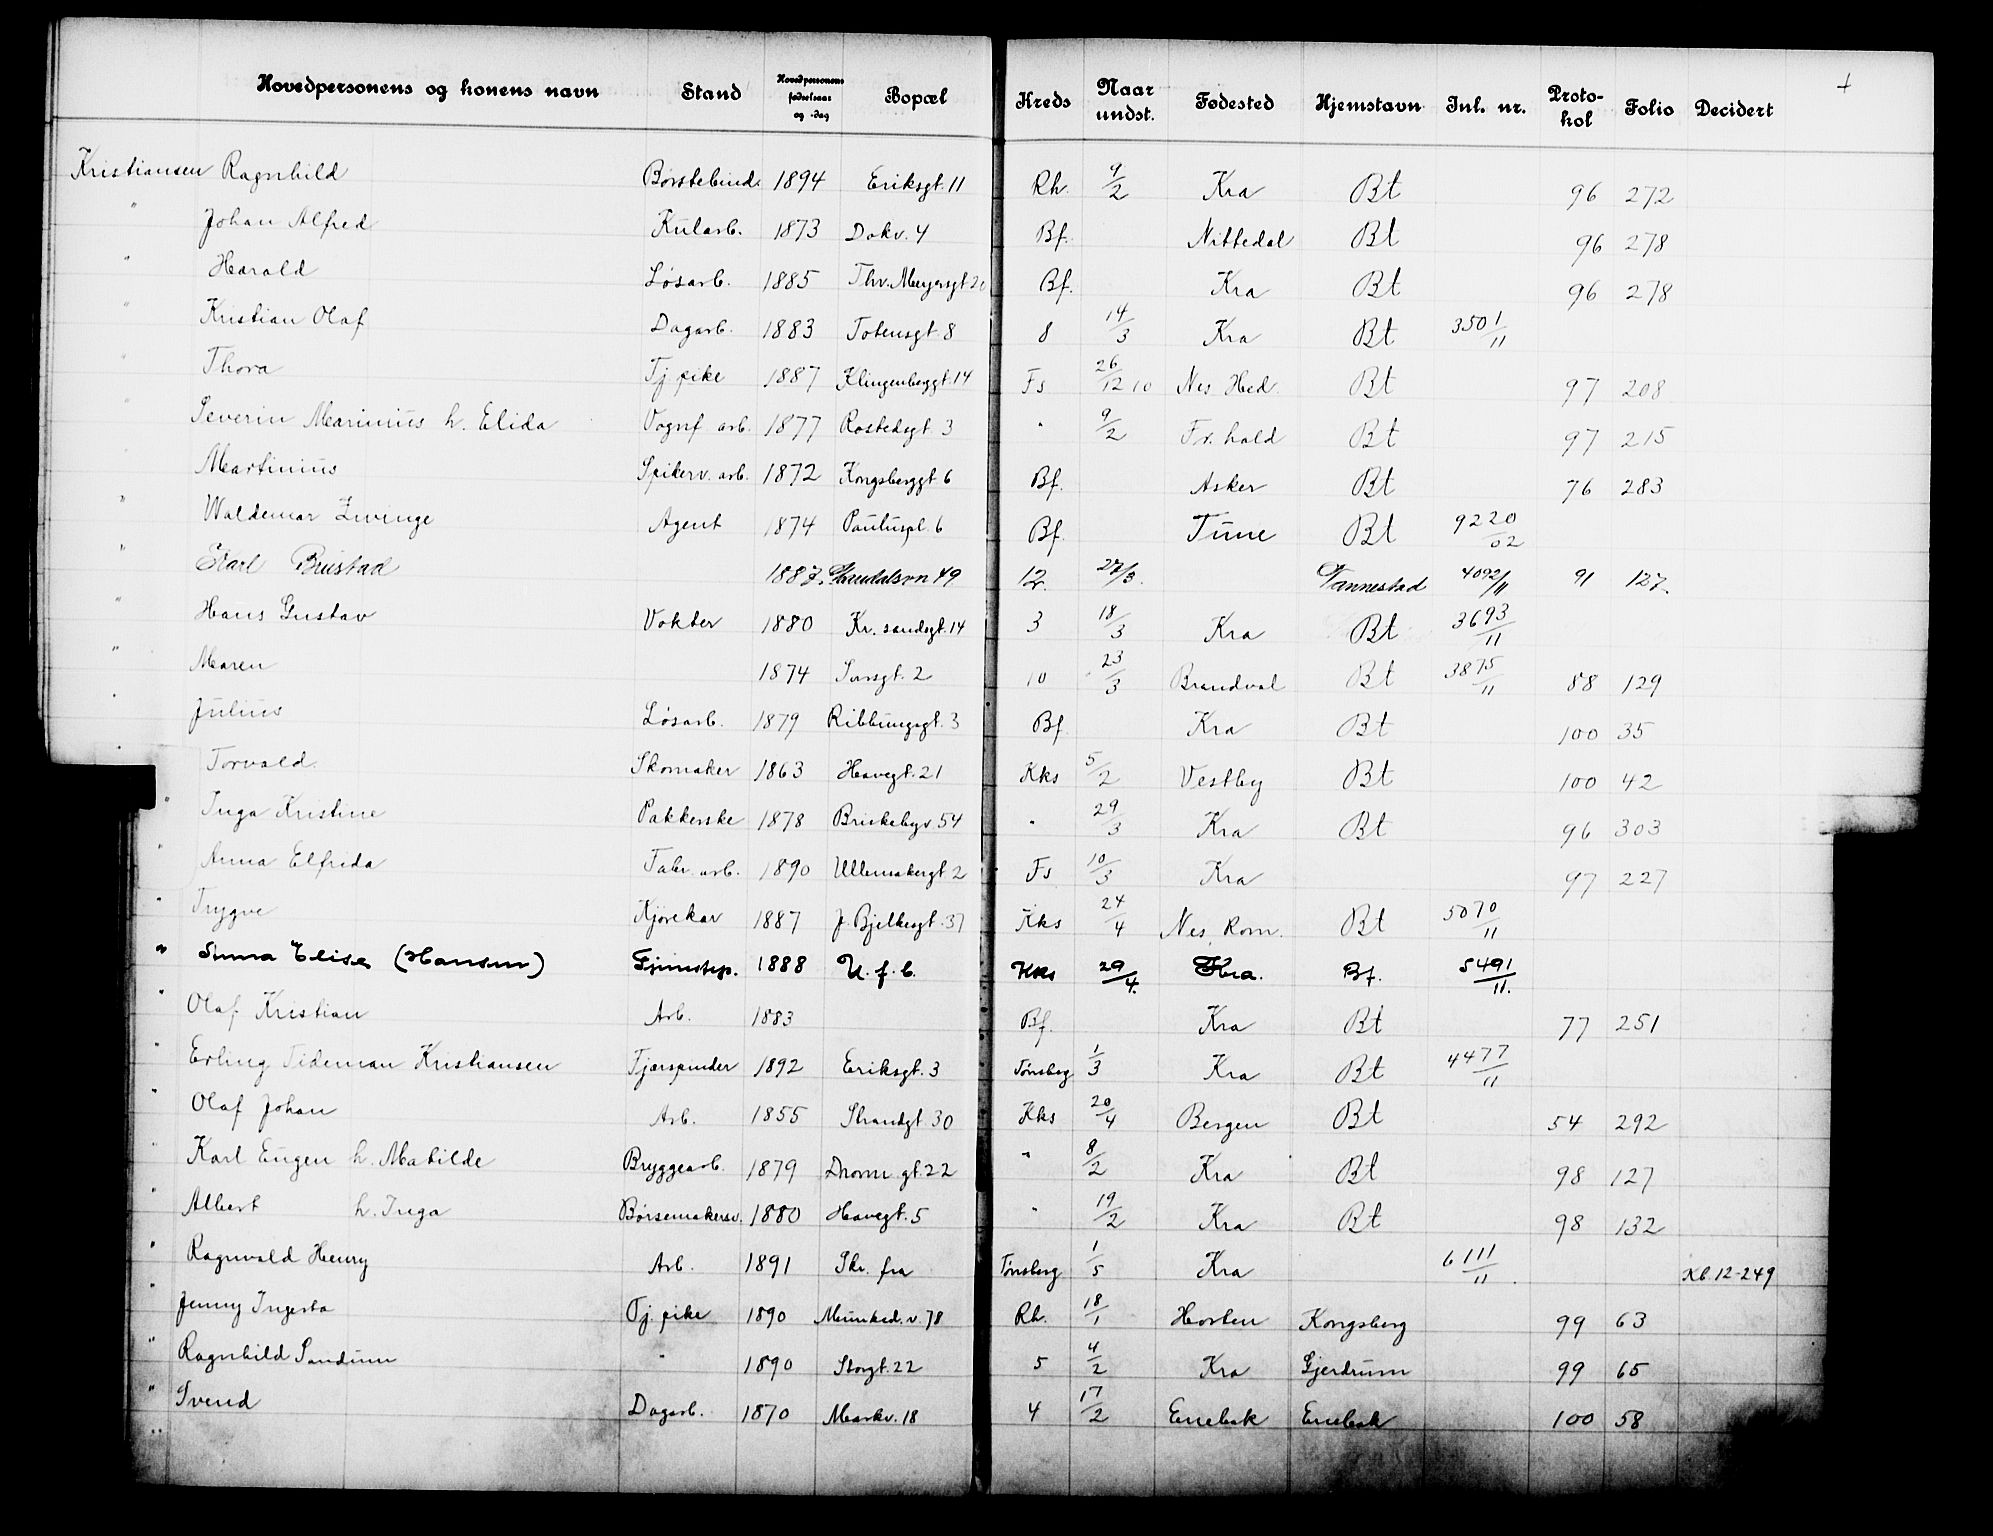 Hovedpersonens og konens navn Stand Hovedpersonens fødselsaar og -dag Bopæl Kreds Naar undst. Fødested Hjemstavn Inl. nr. Protokol Folio Decidert
Kristiansen Ragnhild Børstebind. 1894 Eriksgt. 11 Rh. 9/2 Kra Bt 96 272
" Johan Alfred Kularb. 1873 Dokv. 4 Bf. Nittedal Bt 96 278
" Harald Løsarb. 1885 Thv. Meyersgt 20 Bf. Kra Bt 96 278
" Kristian Olaf Dagarb. 1883 Totensgt. 8 8 14/3 Kra Bt 3501/11
" Thora Tj. pike 1887 Klingenberggt. 14 Fs 26/12 10 Nes Hed. Bt 97 208
Severin Marinius h. Elida Vognf arb. 1877 Rostedsgt. 3 " 9/2 Fr. hald Bt 97 215
Martinius Spikerv. arb. 1872 Kongsberggt. 6 Bf. Asker Bt 76 283
" Waldemar Zwinge Agent 1874 Pauluspl. 6 Bf. Tune Bt 9220/02
" Karl Brustad 1887. 49 12. 27/3. Vannestad 4092/11 91 127.
" Hans Gustav Vokter 1880 Kr. sandsgt. 14 3 18/3 Kra Bt 3693/11
" Maren 1874 Sarsgt. 2 10 23/3 Brandval Bt 3875/11 88 129
" Julius Løsarb. 1879 Ribbungsgt. 3 Bf. Kra Bt 100 35
" Torvald Skomaker 1863 Havegt. 21 Kks 5/2 Vestby Bt 100 42
" Inga Kristine Pakkerske 1878 Briskebyv. 54 " 29/3 Kra Bt 96 303
" Anna Elfrida Fabr. arb. 1890 Ullemakergt 2 Fs 10/3 Kra 97 227
" Trygve Kjørekar 1887 J. Bjelkesgt. 37 Kks 24/4 Nes, Rom. Bt 5070/11
" Elise (Hansen) 1888 U. f. b. Kks 29/4. Kra. Bf. 5491/11.
" Olaf Kristian Arb. 1883 Bf. Kra Bt 77 251
" Erling Tideman Kristiansen Fjærspinder 1892 Eriksgt. 3 Tønsberg 1/3 Kra Bt 4477/11
" Olaf Johan Arb. 1855 Strandgt. 30 Kks 20/4 Bergen Bt 54 292
" Karl Eugen h. Matilde Bryggearb. 1879 Dronn. gt. 22 " 8/2 Kra Bt 98 127
" Albert h. Inga Børsemakersv. 1880 Havegt. 5 " 19/2 Kra Bt 98 132
" Ragnvald Henry Arb. 1891 Skr. fra Tønsberg 1/5 Kra 6111/11 Kb. 12-249
" Jenny Ingerta Tj. pike 1890 Munked. v. 78 Rh. 18/1 Horten Kongsberg 99 63
" Ragnhild Sandum " 1890 Storgt. 22 5 4/2 Kra Gjerdrum 99 65
" Svend Dagarb. 1870 Markv. 18 4 17/2 Enebak Enebak 100 58